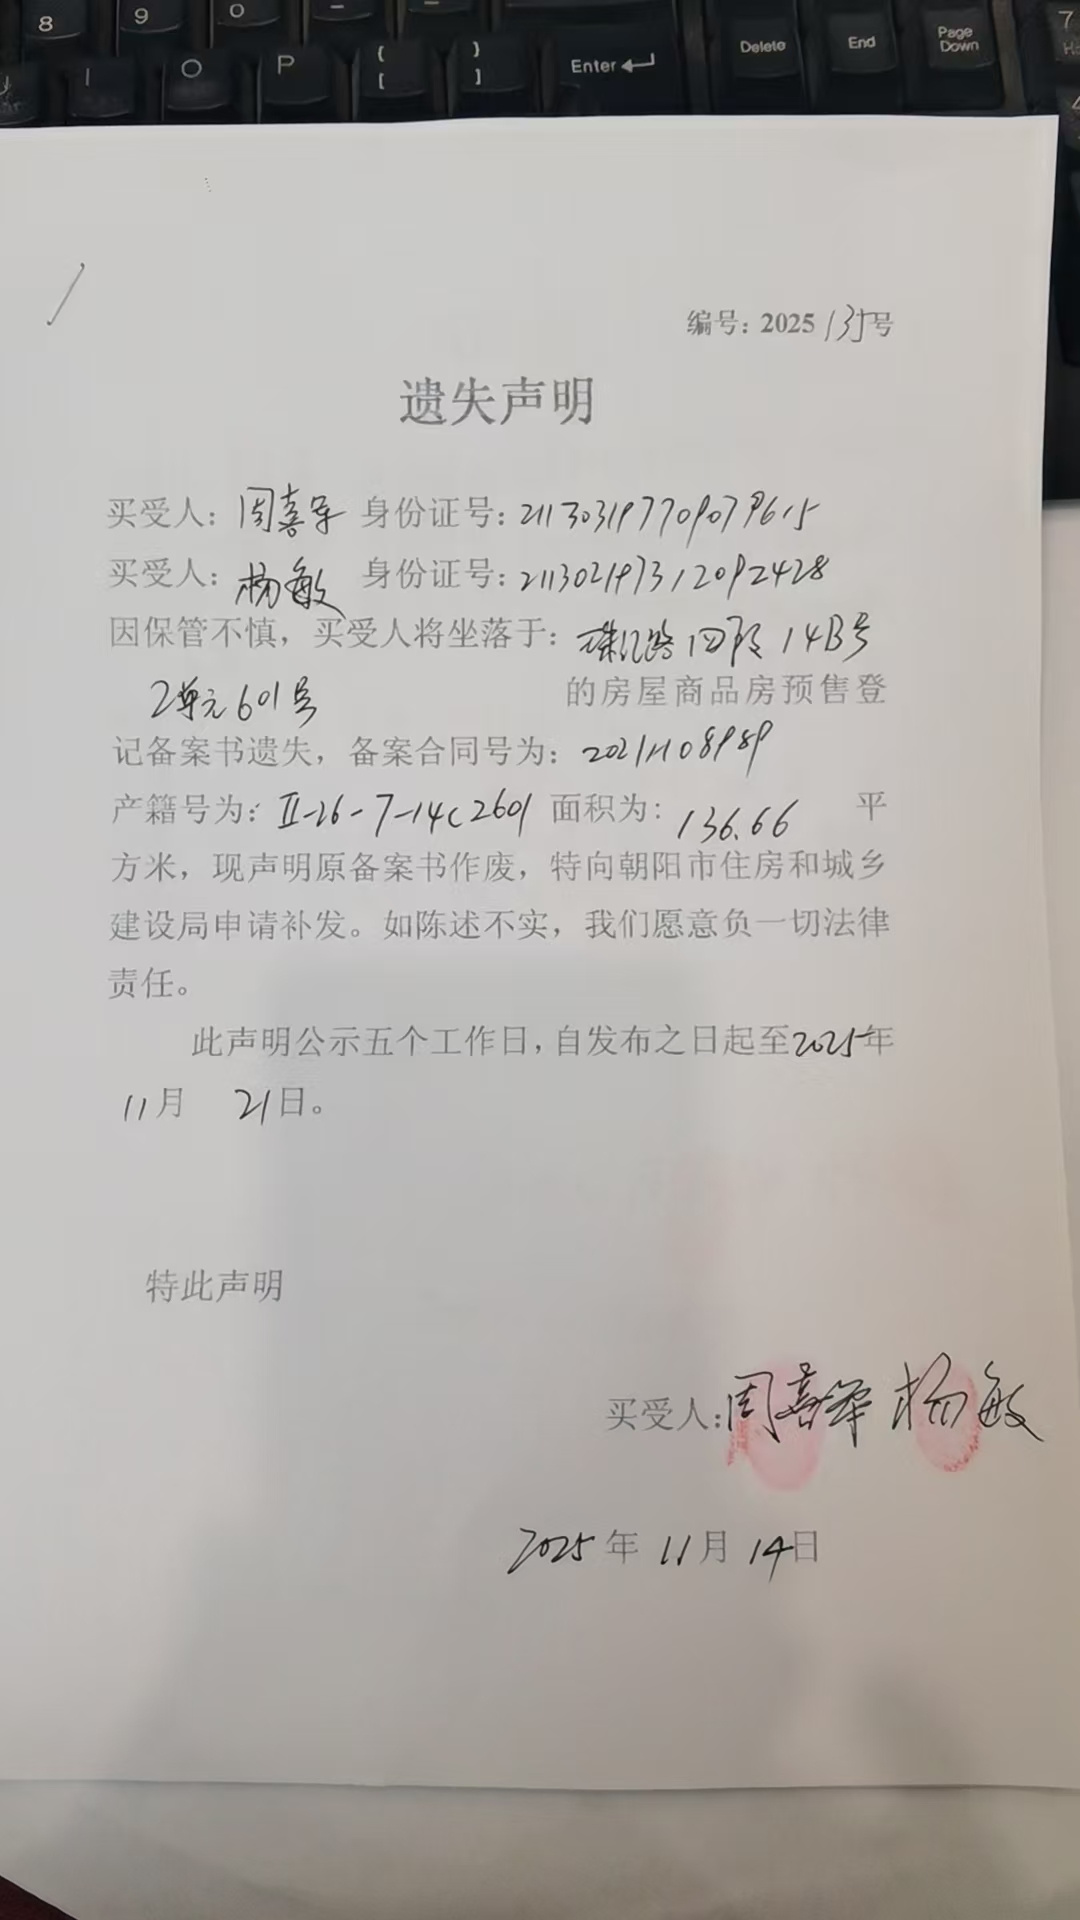 8 9 0 - -
I O P { [ } ] Enter Delete End Page Down 7
编号：2025135号
遗失声明
买受人：周喜军 身份证号：211303197709079615
买受人：杨敏 身份证号：211302197312092428
因保管不慎，买受人将坐落于：珠江路四段14B号
2单元601号 的房屋商品房预售登
记备案书遗失，备案合同号为：
产籍号为：II-26-7-14C2601 面积为：136.66 平
方米，现声明原备案书作废，特向朝阳市住房和城乡
建设局申请补发。如陈述不实，我们愿意负一切法律
责任。
此声明公示五个工作日，自发布之日起至2025年
11月 21日。
特此声明
买受人：周喜军 杨敏
2025年 11月 14日